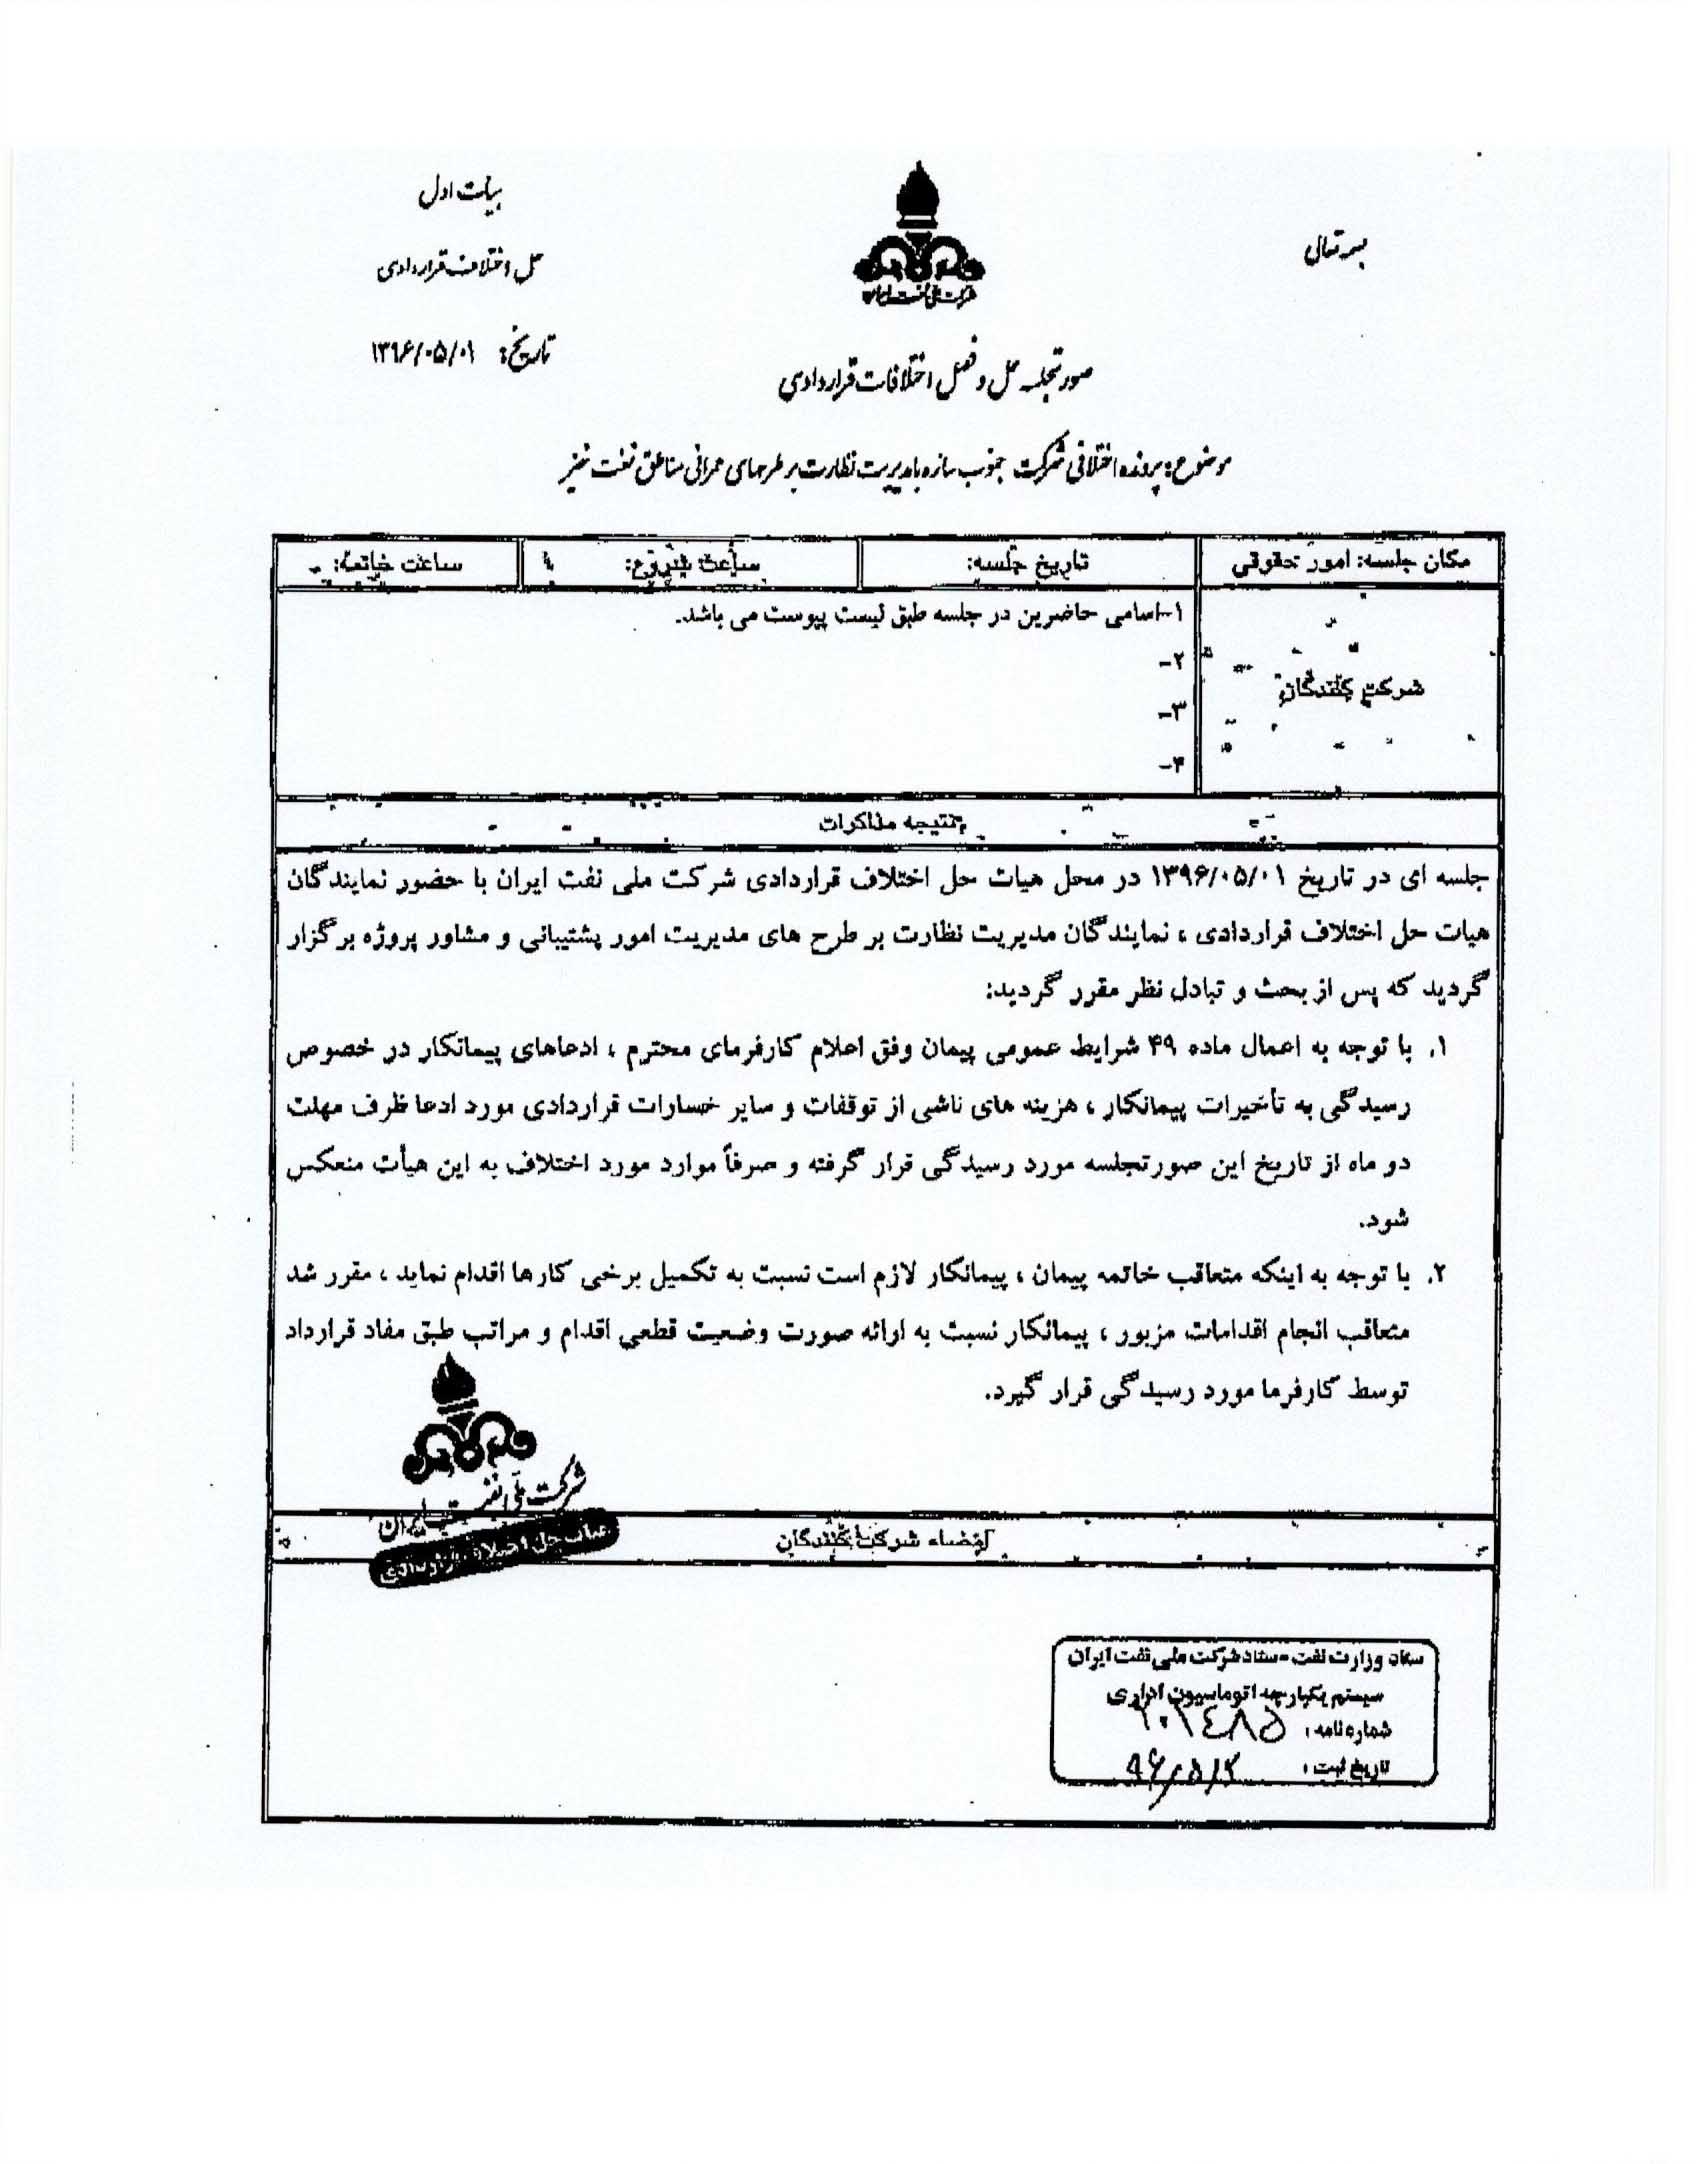 بسمه تعالی
شرکت ملی نفت ایران
هیات اول
حل اختلاف قراردادی
تاریخ: ۱۳۹۶/۰۵/۰۱
صورتجلسه حل و فصل اختلافات قراردادی
موضوع: پرونده اختلافی شرکت جنوب سازه با مدیریت نظارت بر طرحهای عمرانی مناطق نفت خیز
مکان جلسه: امور حقوقی
تاریخ جلسه:
ساعت شروع:
ساعت خاتمه:
شرکت کنندگان:
۱-اسامی حاضرین در جلسه طبق لیست پیوست می باشد.
۲-
۳-
۴-
نتیجه مذاکرات
جلسه ای در تاریخ ۱۳۹۶/۰۵/۰۱ در محل هیات حل اختلاف قراردادی شرکت ملی نفت ایران با حضور نمایندگان
هیات حل اختلاف قراردادی ، نمایندگان مدیریت نظارت بر طرح های مدیریت امور پشتیبانی و مشاور پروژه برگزار
گردید که پس از بحث و تبادل نظر مقرر گردید:
۱. با توجه به اعمال ماده ۴۹ شرایط عمومی پیمان وفق اعلام کارفرمای محترم ، ادعاهای پیمانکار در خصوص
رسیدگی به تأخیرات پیمانکار ، هزینه های ناشی از توقفات و سایر خسارات قراردادی مورد ادعا ظرف مهلت
دو ماه از تاریخ این صورتجلسه مورد رسیدگی قرار گرفته و صرفاً موارد مورد اختلاف به این هیأت منعکس
شود.
۲. با توجه به اینکه متعاقب خاتمه پیمان ، پیمانکار لازم است نسبت به تکمیل برخی کارها اقدام نماید ، مقرر شد
متعاقب انجام اقدامات مزبور ، پیمانکار نسبت به ارائه صورت وضعیت قطعی اقدام و مراتب طبق مفاد قرارداد
توسط کارفرما مورد رسیدگی قرار گیرد.
شرکت ملی نفت ایران
هیات حل اختلاف قراردادی
امضاء شرکت کنندگان
ستاد وزارت نفت - ستاد شرکت ملی نفت ایران
سیستم یکپارچه اتوماسیون اداری
شماره نامه : ۲۰۱۴۸۵
تاریخ ثبت : ۹۶/۵/۲